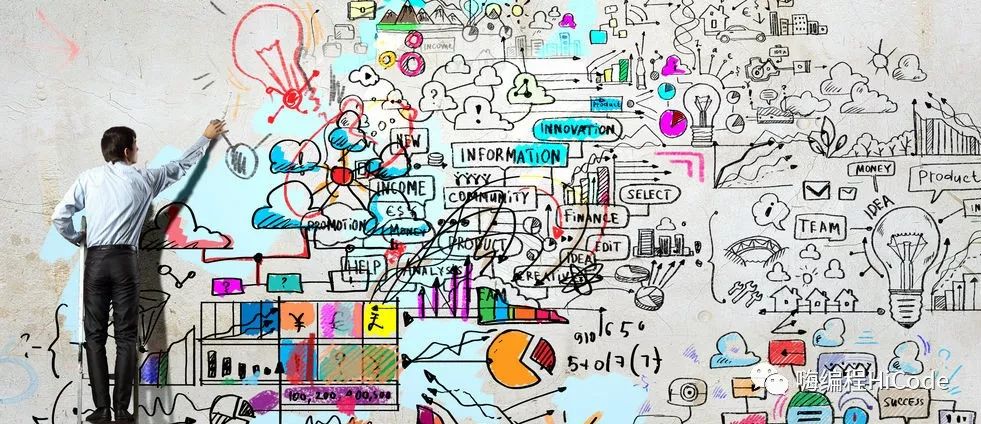 INCOME
Product
INNOVATION
NEW
INFORMATION
MONEY
Product
INCOME
COMMUNITY
SELECT
IDEA
€$£
FINANCE
TEAM
PROMOTION
MONEY
PRODUCT
EDIT
HELP
ANALYSIS
IDEA
CREATIVE
TEAM
¥
£
5+0/7(7)
嗨编程HiCode
100, 200, 400, 500
SUCCESS